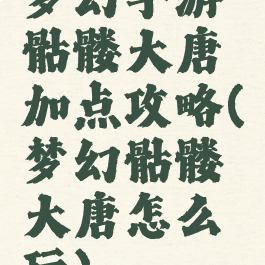 梦幻手游
骷髅大唐
加点攻略(
梦幻骷髅
大唐怎么
玩)